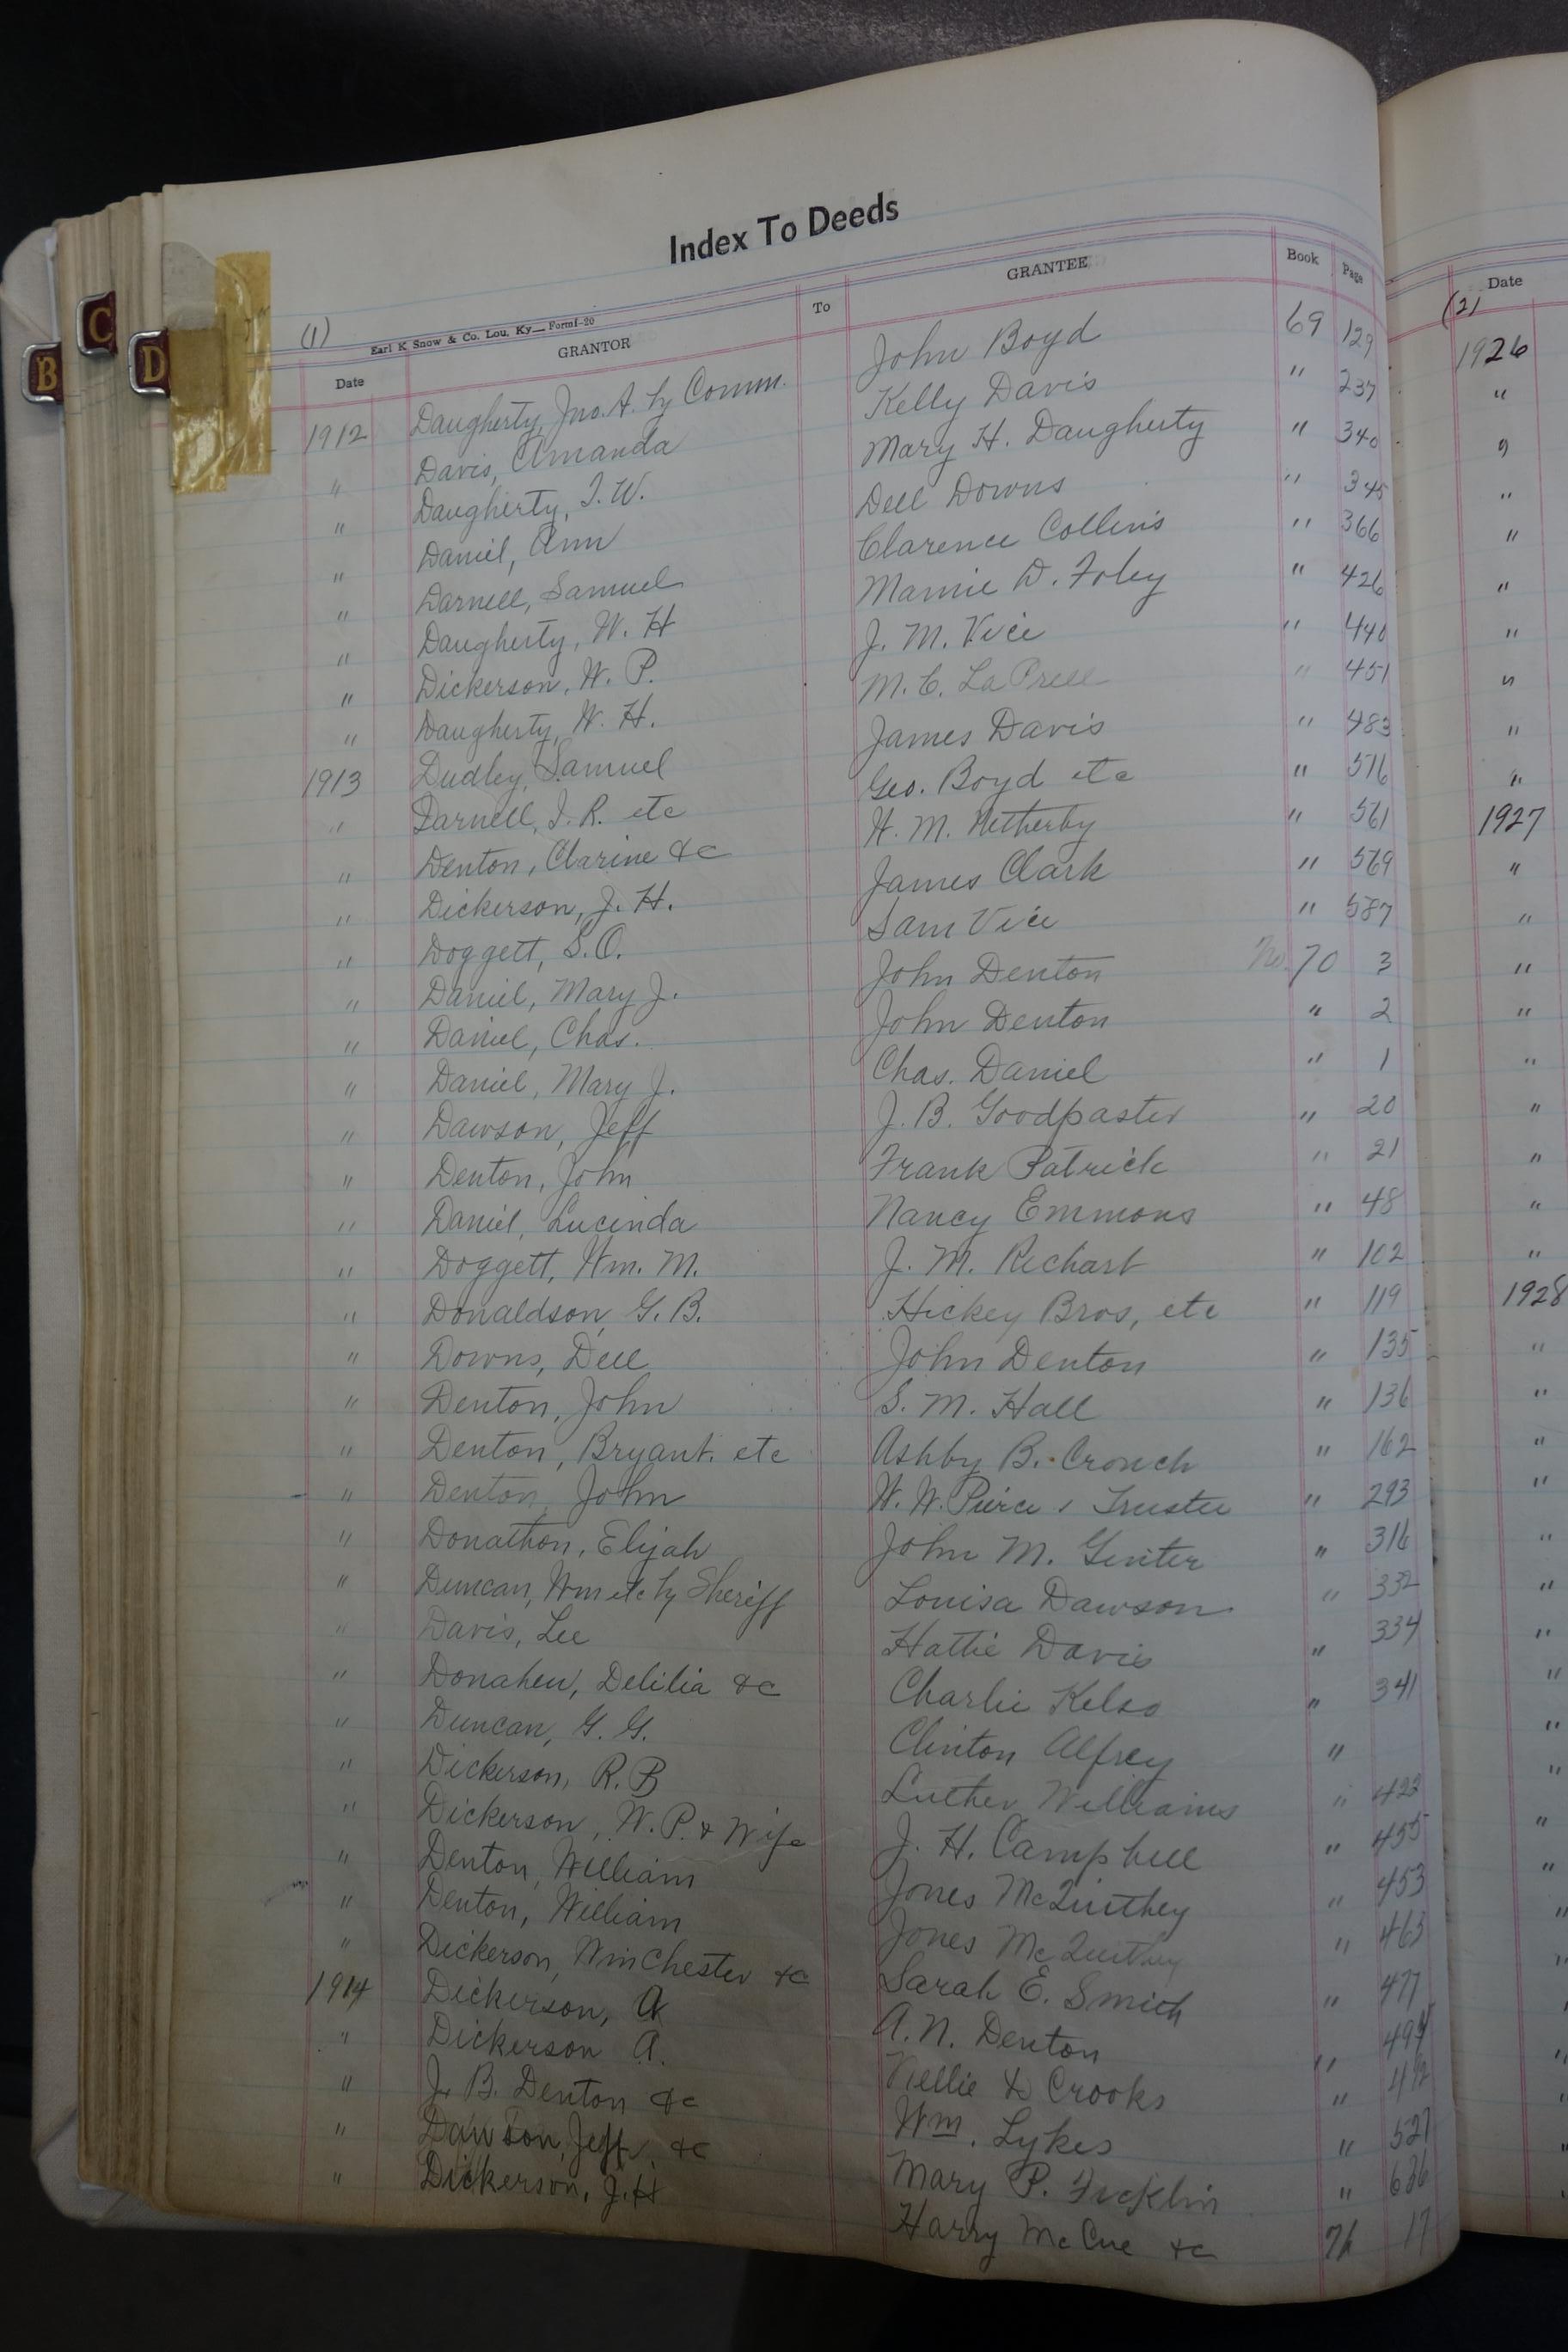 Index To Deeds
(1) Earl K Snow & Co. Lou. Ky— Form I-20
Date GRANTOR To GRANTEE Book Page
1912 Daugherty, Jno. A. by Comm. John Boyd 69 129
" Davis, Amanda Kelly Davis " 237
" Daugherty, I. W. Mary H. Daugherty " 340
" Daniel, Ann Dell Downs " 345
" Darnell, Samuel Clarence Collins " 366
" Daugherty, W. H Mamie D. Foley " 426
" Dickerson, W. P. J. M. Vice " 440
" Daugherty, W. H. M. C. LaPrell " 451
1913 Dudley, Samuel James Davis " 483
" Darnell, I. R. etc Geo. Boyd etc " 516
" Denton, Clarine &c H. M. Netherby " 561
" Dickerson, J. H. James Clark " 569
" Doggett, S. O. Sam Vice " 587
" Daniel, Mary J. John Denton No. 70 3
" Daniel, Chas. John Denton " 2
" Daniel, Mary J. Chas. Daniel " 1
" Dawson, Jeff J. B. Goodpaster " 20
" Denton, John Frank Patrick " 21
" Daniel, Lucinda Nancy Emmons " 48
" Doggett, Wm. M. J. M. Richart " 102
" Donaldson, G. B. Hickey Bros, etc " 119
" Downs, Dell John Denton " 135
" Denton, John S. M. Hall " 136
" Denton, Bryant. etc Ashby B. Crouch " 162
" Denton, John W. W. Pierce, Trustee " 293
" Donathon, Elijah John M. Ginter " 316
" Duncan, Wm etc by Sheriff Louisa Dawson " 332
" Davis, Lee Hattie Davis " 334
" Donaheu, Delilia &c Charlie Kelso " 341
" Duncan, G. G. Clinton Alfrey "
" Dickerson, R. B Luther Williams " 423
" Dickerson, W. P. & Wife J. H. Campbell " 455
" Denton, William Jones McQuithey " 453
" Denton, William Jones McQuithey " 463
" Dickerson, Winchester &c Sarah E. Smith " 477
1914 Dickerson, A A. N. Denton " 494
" Dickerson A. Nellie D Crooks " 492
" J. B. Denton &c Wm. Lykes " 527
" Dawson, Jeff, &c Mary P. Ficklin " 626
" Dickerson, J. H Harry McCue &c 71 17
(2) Date
1926
1927
1928
B
C
D